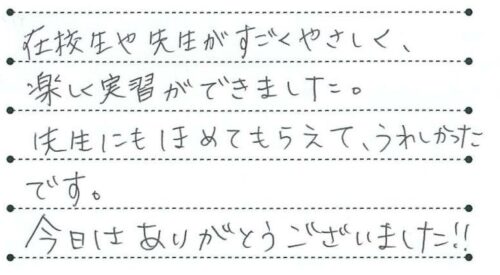 在校生や先生がすごくやさしく、
楽しく実習ができました。
先生にもほめてもらえて、うれしかった
です。
今日はありがとうございました!!